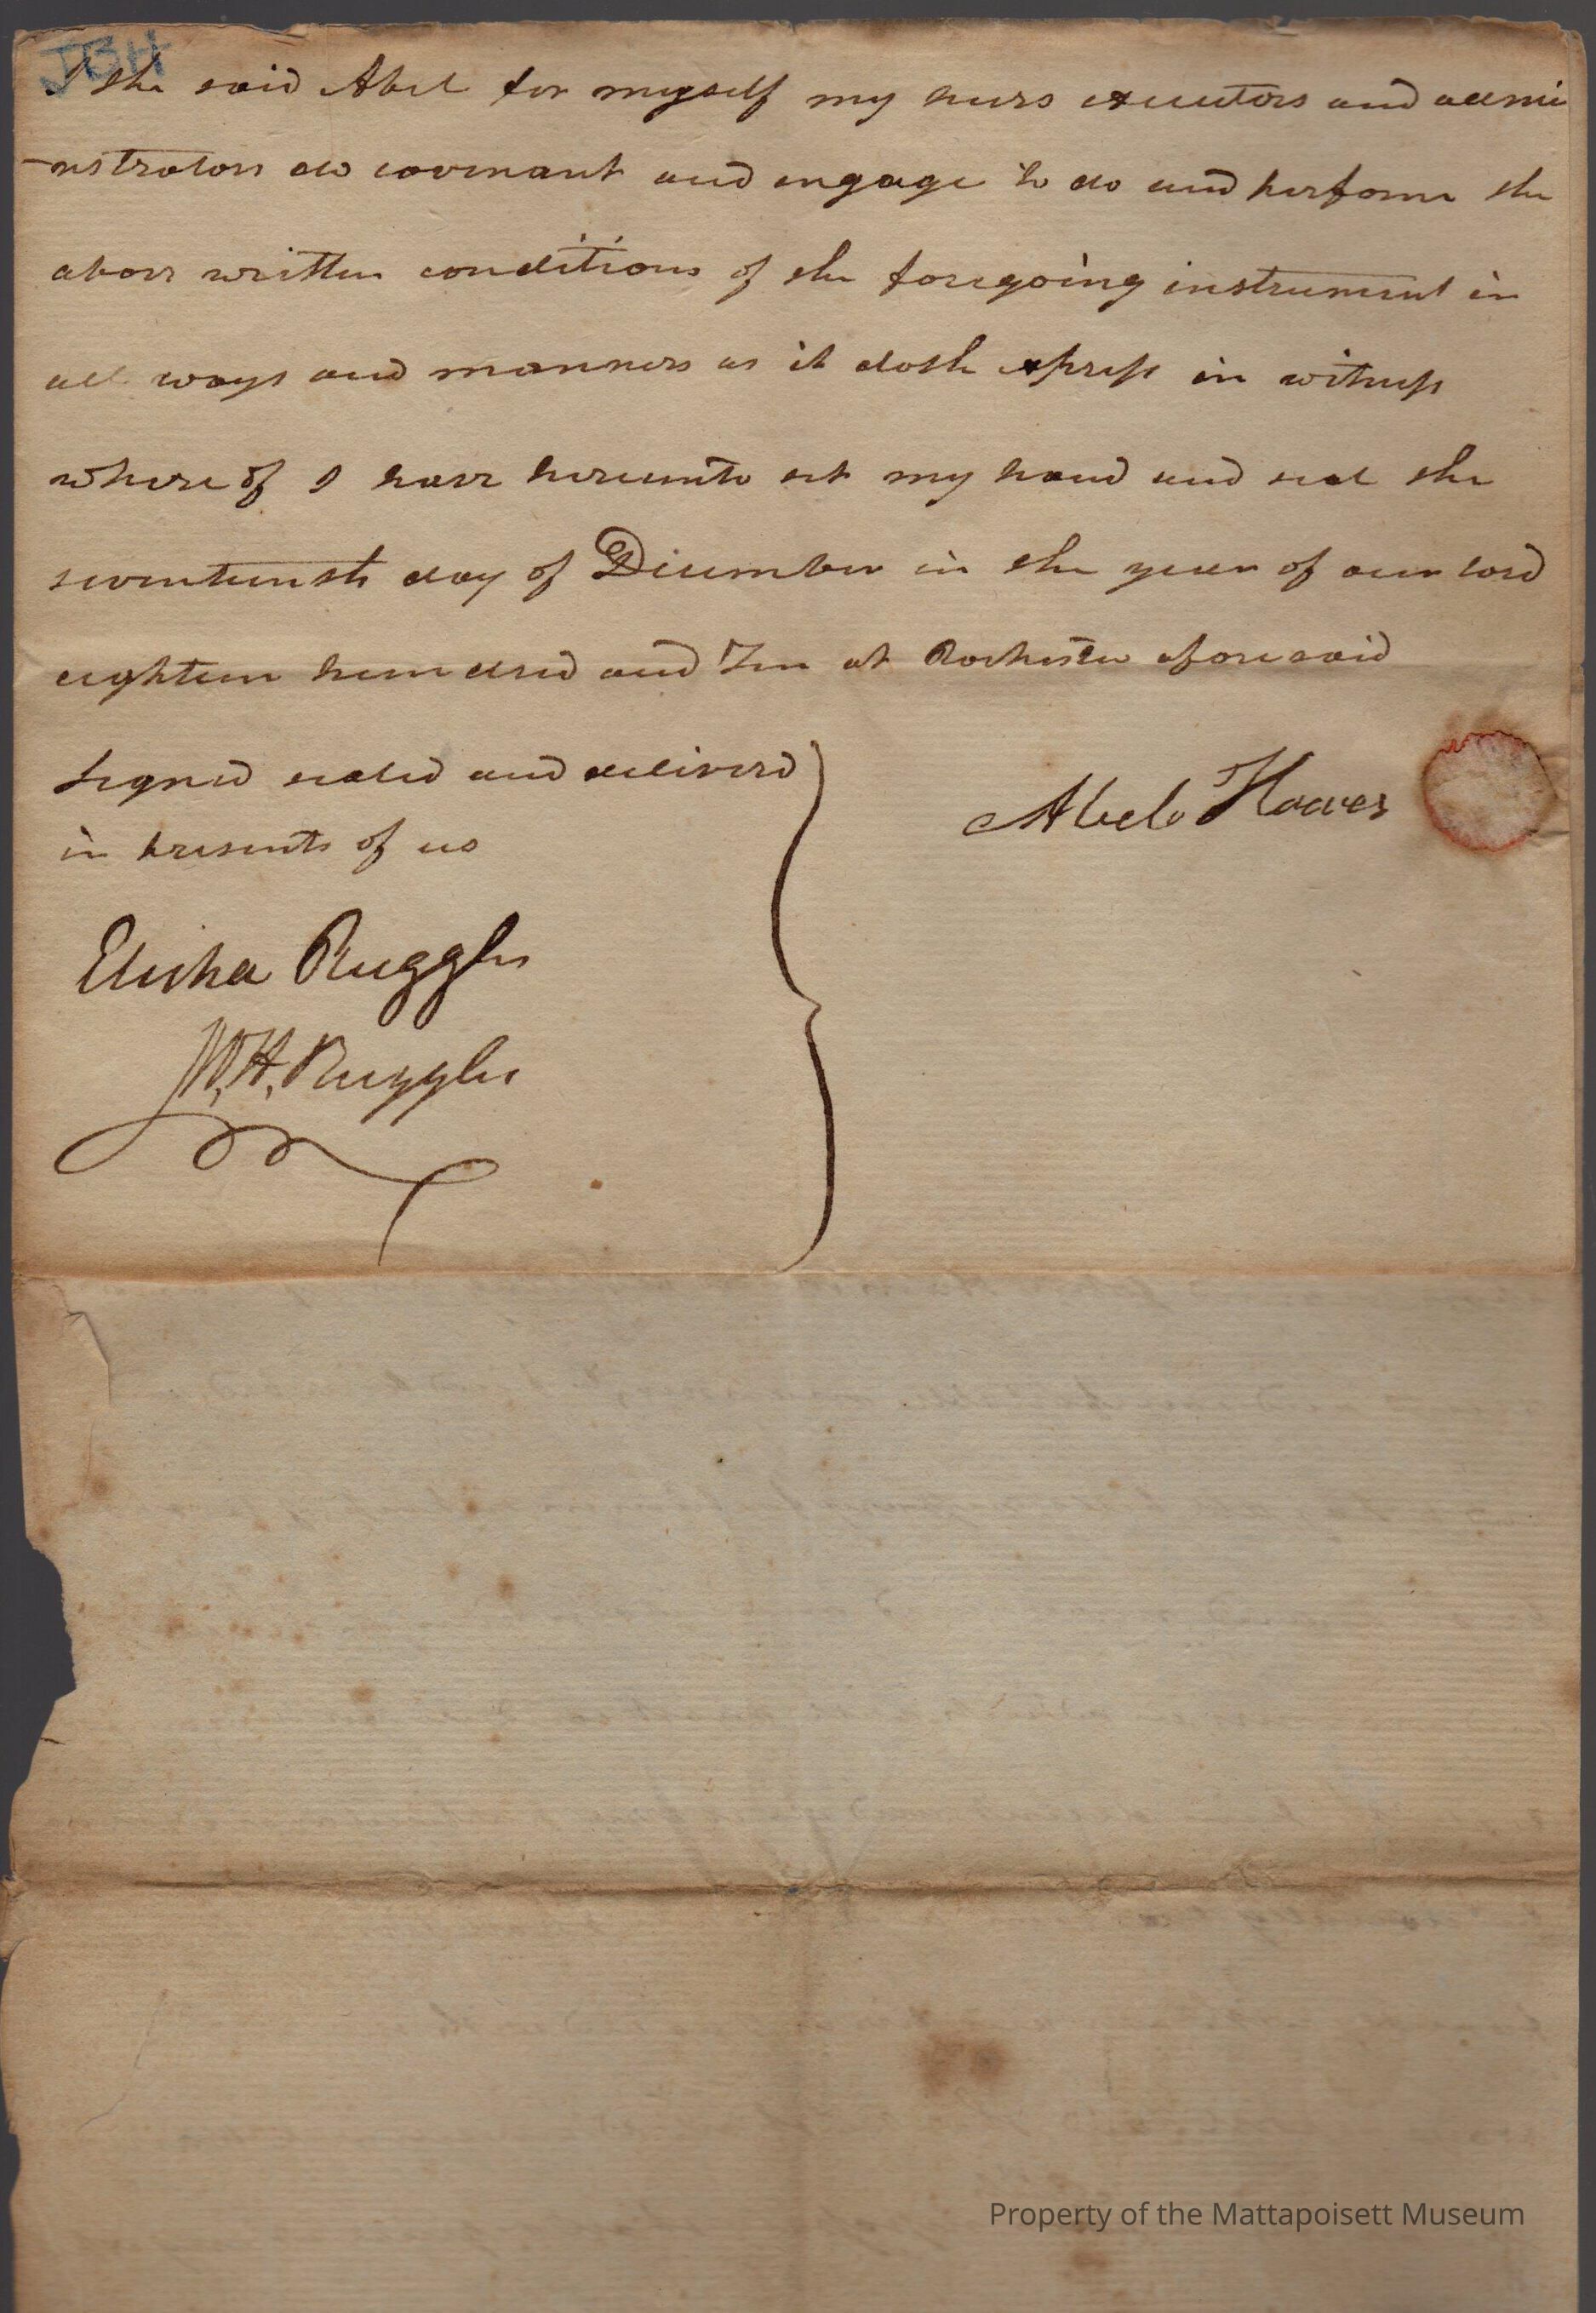 JBH
I the said Abel for myself my heirs executors and admi
-nistrators do covenant and engage to do and perform the
above written conditions of the foregoing instrument in
all ways and manners as it doth express in witness
where of I have hereunto set my hand and seal the
seventeenth day of December in the year of our lord
eighteen hundred and Ten at Rochester afore said
Signed sealed and delivered
in presents of us
Abel Hawes
Elisha Ruggles
W. H. Ruggles
Property of the Mattapoisett Museum